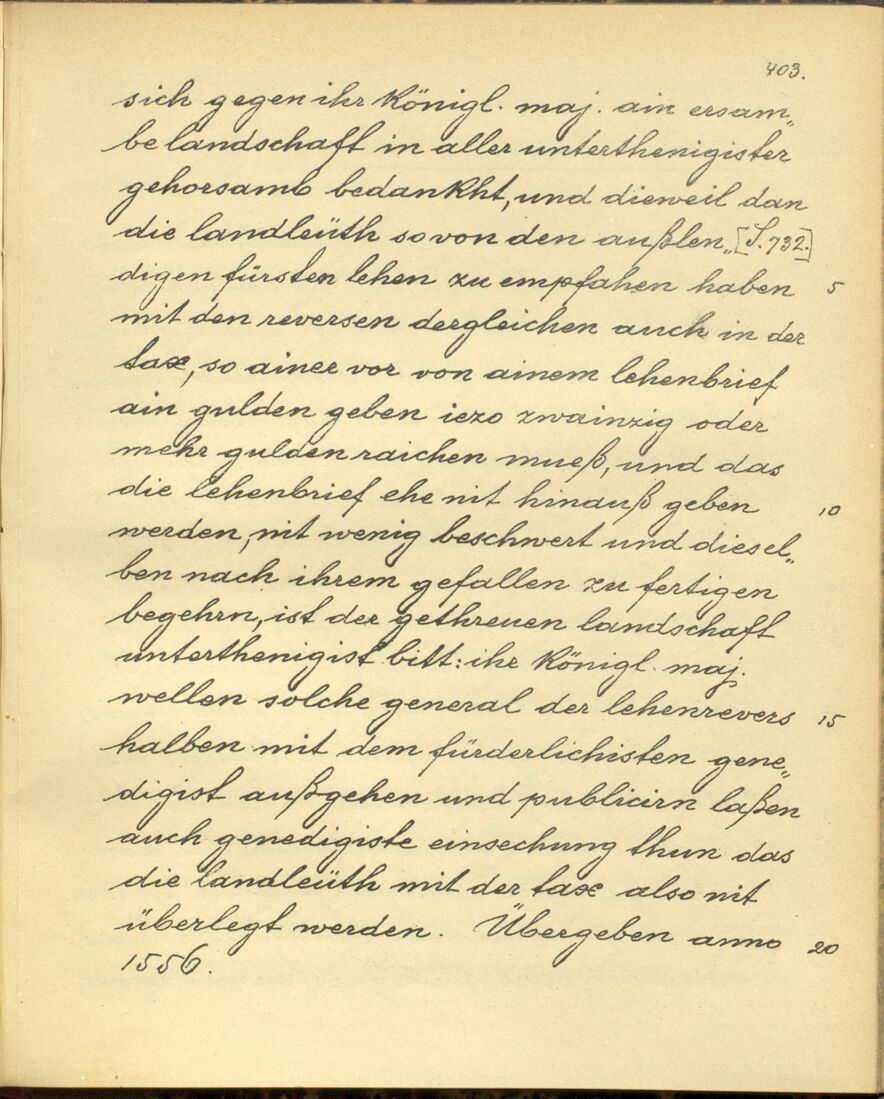 403.
sich gegen ihr Königl. maj. ain ersam„
be landschaft in aller unterthenigister
gehorsamb bedankht, und dieweil dan
die landleüth so von den außlen„ [S. 732.]
digen fürsten lehen zu empfahen haben 5
mit den reversen dergleichen auch in der
tax, so ainer vor von ainem lehenbrief
ain gulden geben iezo zwainzig oder
mehr gulden raichen mueß, und das
die lehenbrief ehe nit hinauß geben 10
werden, nit wenig beschwert und diesel„
ben nach ihrem gefallen zu fertigen
begehrn, ist der gethreuen landschaft
unterthenigist bitt: ihr Königl. maj.
wellen solche general der lehenrevers 15
halben mit dem fürderlichisten gene„
digist außgehen und publicirn laßen
auch genedigiste einsechung thun das
die landleüth mit der tax also nit
überlegt werden. Übergeben anno 20
1556.